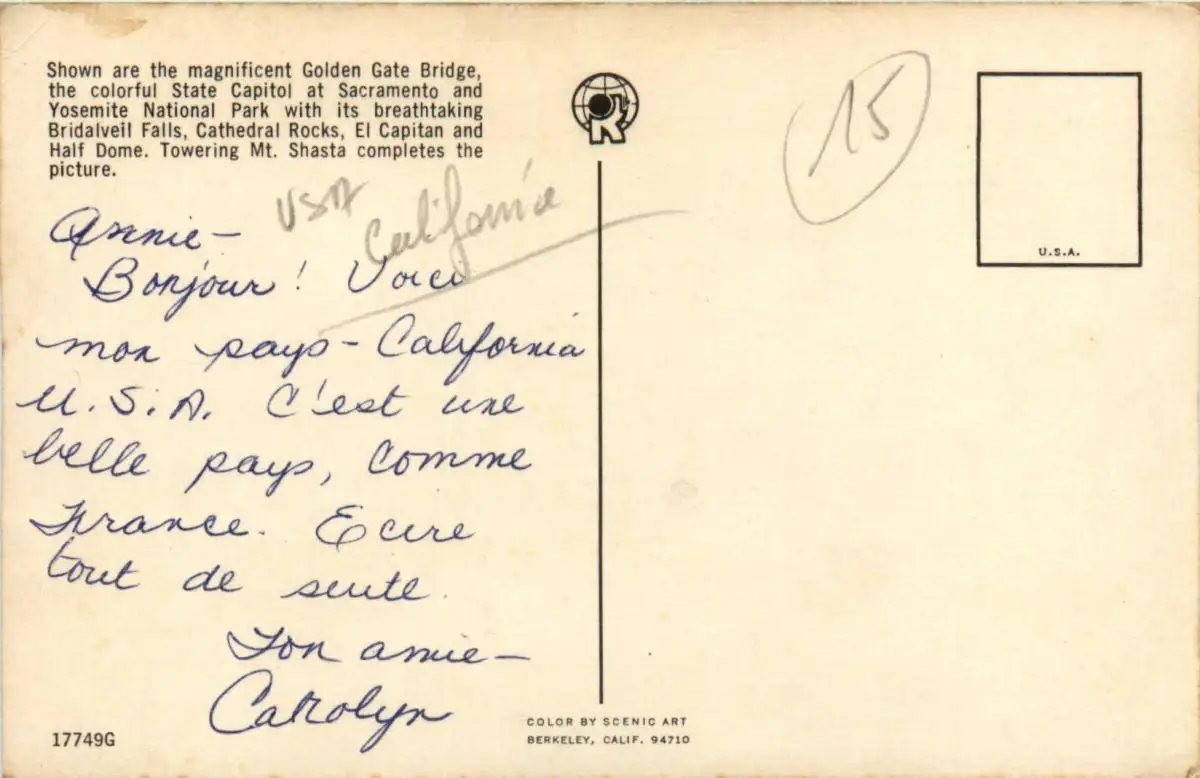 Shown are the magnificent Golden Gate Bridge,
the colorful State Capitol at Sacramento and
Yosemite National Park with its breathtaking
Bridalveil Falls, Cathedral Rocks, El Capitan and
Half Dome. Towering Mt. Shasta completes the
picture.
15
U.S.A.
USA
Californie
Annie-
Bonjour! Voici
mon pays - California
U.S.A. C'est une
belle pays, comme
France. Ecire
tout de suite.
Ton amie-
Carolyn
17749G
COLOR BY SCENIC ART
BERKELEY, CALIF. 94710